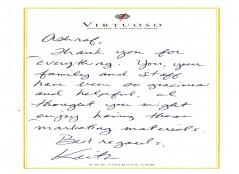 VIRTUOSO
Ashraf,
Thank you for
everything. You, your
family and staff
have been so gracious
and helpful. I
thought you might
enjoy having these
marketing materials.
Best regards,
Keith
www.virtuoso.com